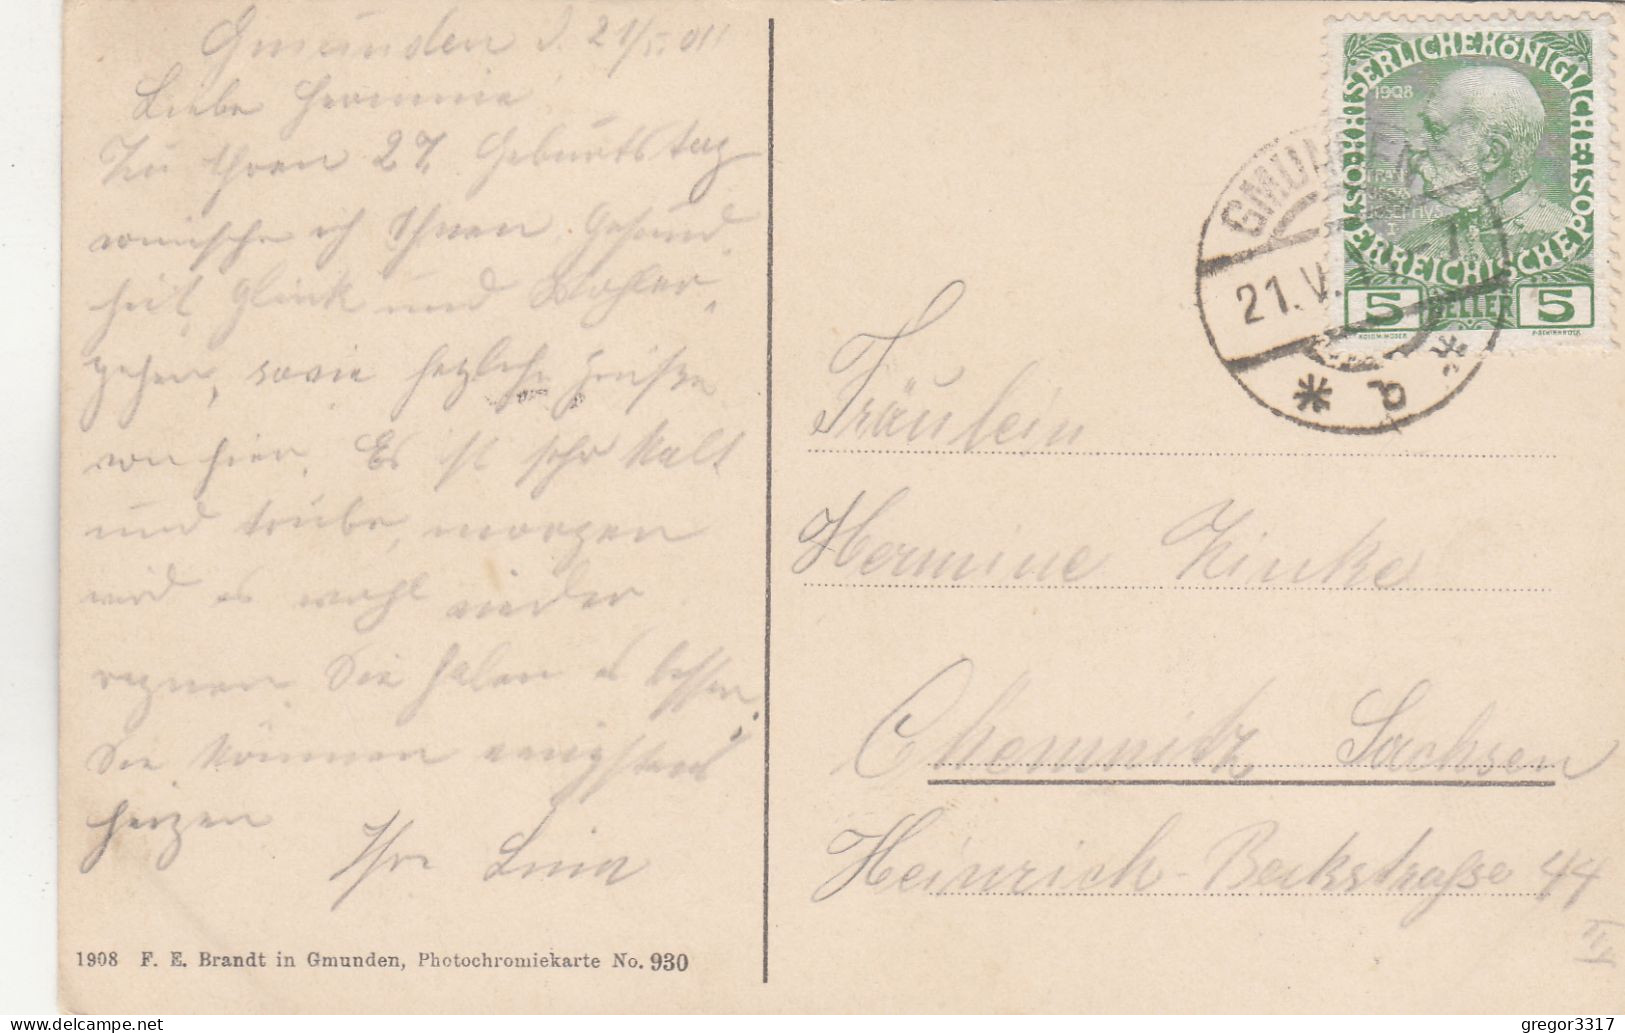 Gmunden d. 21/5. 011
Liebe Hermine
Zu Ihren 27. Geburtstag
wünsche ich Ihnen Gesund
heit, Glück und Wohler,
gehen, sowie hezliche Grüße
von hier. Es ist sehr kalt
und trübe, morgen
wird es wohl wieder
regnen. Sie haben es besser,
Sie können wenigstens
heizen
Ihre Lina
1908 F. E. Brandt in Gmunden, Photochromiekarte No. 930
KAISERLICHE KÖNIGLICHE ÖSTERREICHISCHE POST
1908
FRANC
IOSEPHVS
I
5 HELLER 5
KOLOM. MOSER
F. SCHIRNBÖCK
GMUNDEN
21. V.
* a *
Fräulein
Hermine Zinke
Chemnitz Sachsen
Heinrich-Beckstraße 44
gregor3317